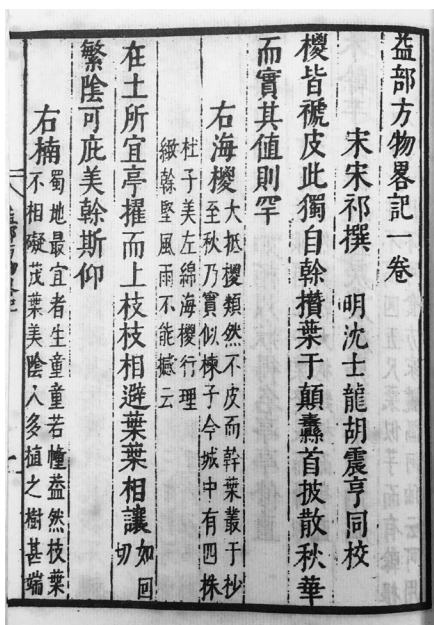 益部方物畧記一卷
宋宋祁撰　明沈士龍胡震亨同校
椶皆褫皮此獨自榦攢葉于顛蠹首披散秋華
而實其值則罕
右海椶大抵椶類然不皮而幹葉叢于杪
至秋乃實似楝子今城中有四株
杜子美左綿海椶行理
緻幹堅風雨不能撼云
在土所宜亭擢而上枝枝相避葉葉相讓如回
切
繁陰可庇美榦斯仰
右楠蜀地最宜者生童童若幢葢然枝葉
不相礙茂葉美陰人多植之樹甚端